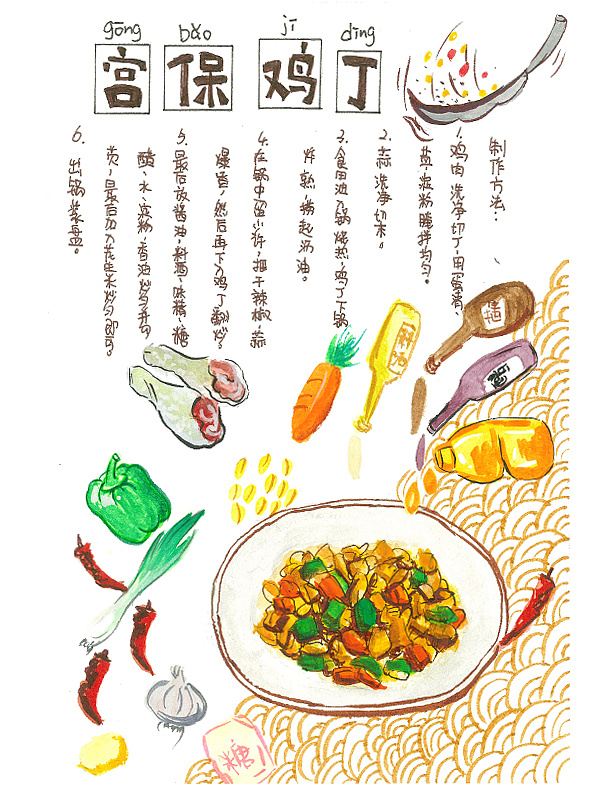 gōng bǎo jī dīng
宫保鸡丁
制作方法：
1.鸡肉洗净切丁,用蛋清、
盐,淀粉腌拌均匀。
2.蒜洗净切末。
3.食用油入锅烧热,鸡丁下锅
炸熟,捞起沥油。
4.在锅中留少许,把干辣椒、蒜
爆香,然后再下入鸡丁翻炒。
5.最后放酱油,料酒,味精,糖
醋、水、淀粉、香油炒匀并勾
芡,最后加入花生米炒匀即可。
6.出锅装盘。
麻油
醋
糖